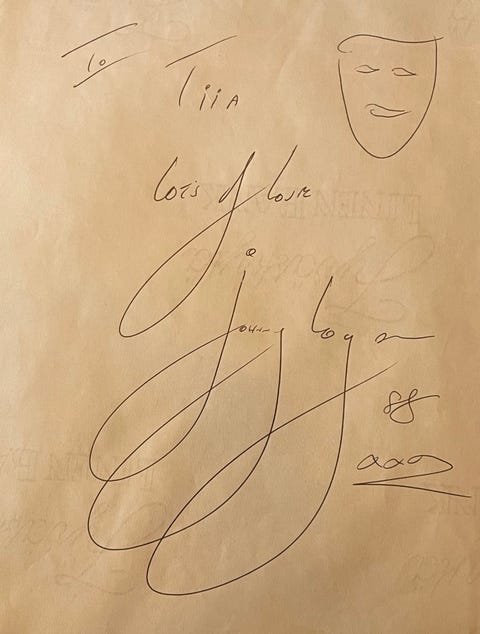 To
Tiia
Lots of Love
Johnny Logan
88
xxx